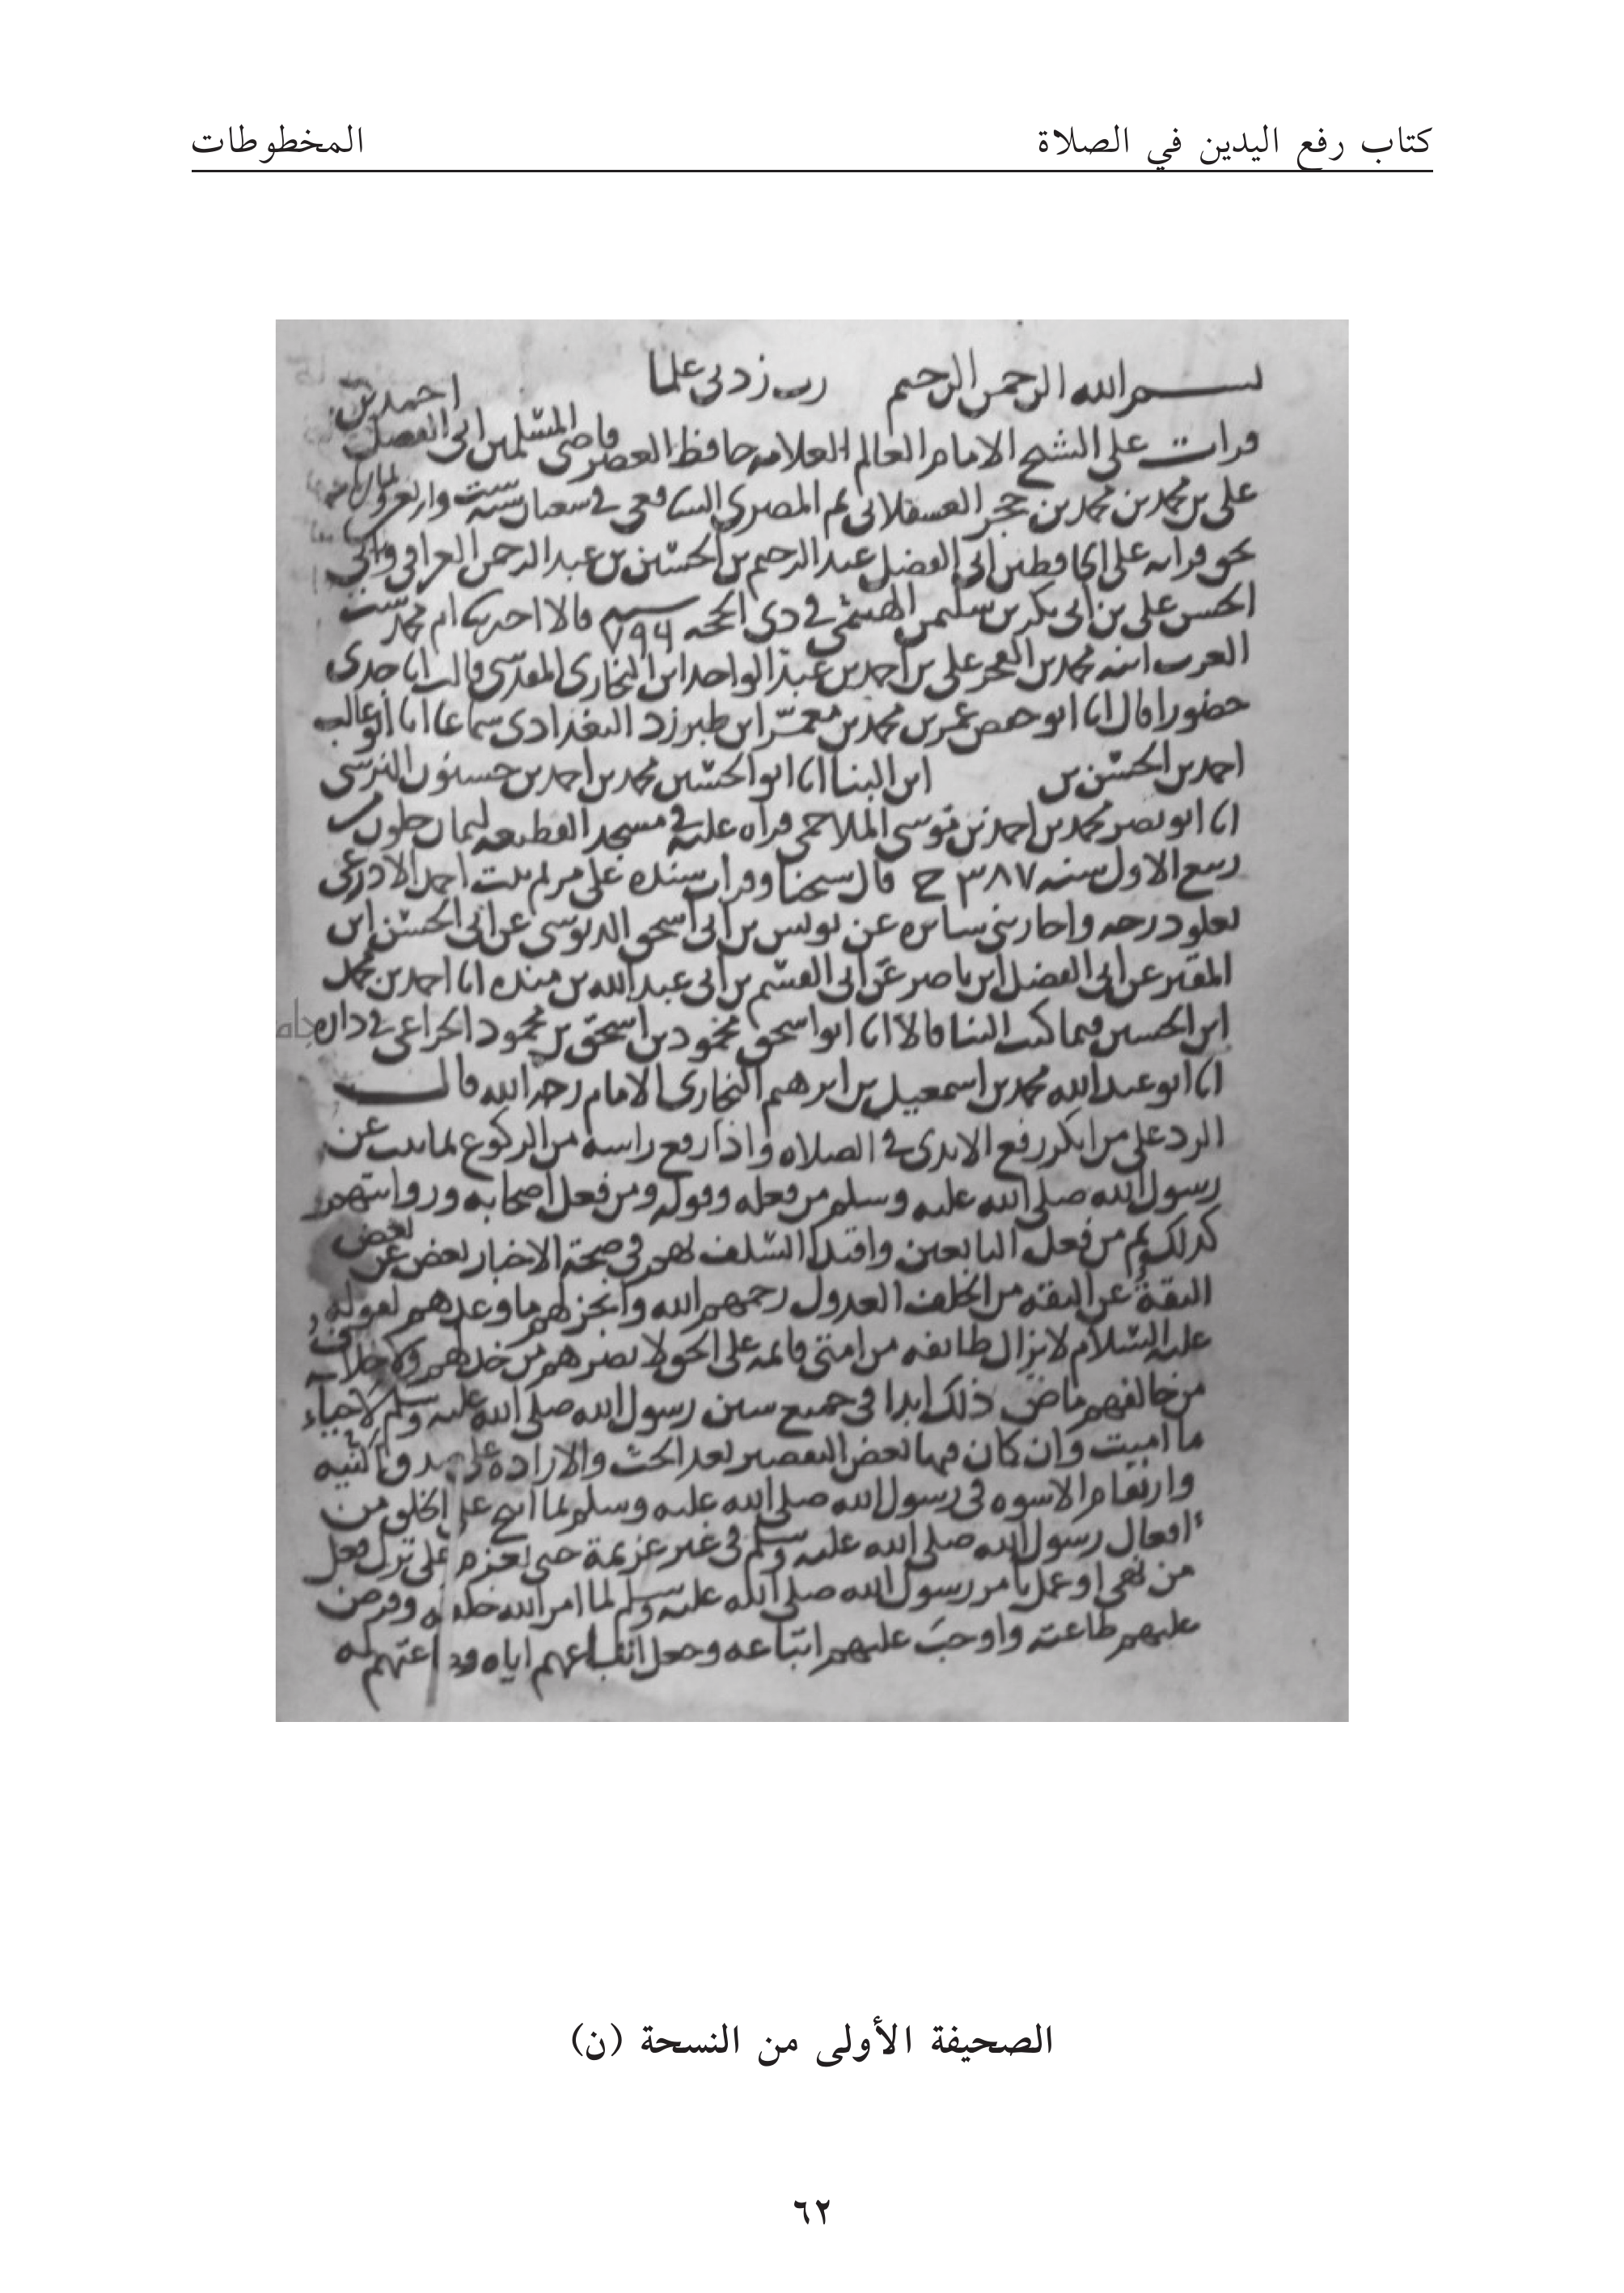 كتاب رفع اليدين في الصلاة
المخطوطات
بسم الله الرحمن الرحيم رب زدني علما
قرات على الشيخ الامام العالم العلامه حافظ العصر قاضى المسلمين ابى الفضل احمد بن
على بن محمد بن محمد بن حجر العسقلانى ثم المصرى الشافعى فى شعبان سنة ست واربعين وثمان
بحق قراته على الحافظين ابى الفضل عبد الرحيم بن الحسين بن عبد الرحمن العراقى وابى
الحسن على بن ابى بكر بن سليمن الهيثمى فى ذى الحجه سنة ٧٩٤ قالا اخبرتنا ام محمد ست
العرب ابنه محمد بن الفخر على بن احمد بن عبد الواحد ابن البخارى المقدسى قالت انا جدى
حضورا قال انا ابو حفص عمر بن محمد بن معمر ابن طبرزد البغدادى سماعا انا ابو غالب
احمد بن الحسن بن ابن البنا انا ابو الحسين محمد بن احمد بن حسنون النرسى
انا ابو نصر محمد بن احمد بن موسى الملاحمى قراه عليه فى مسجد القطيعه لثمان خلون من
ربيع الاول سنه ٣٨٧ ح قال شيخنا وقرات سنده على مريم بنت احمد الاذرعى
بعلو درجه واجازتنى سائره عن يونس بن ابى اسحق الدبوسى عن ابى الحسن ابن
المقير عن ابى الفضل ابن ناصر عن ابى القسم بن ابى عبد الله بن منده انا احمد بن محمد
ابن الحسين فيما كتب الينا قالا انا ابو اسحق محمود بن اسحق بن محمود الخزاعى فى داره
انا ابو عبد الله محمد بن اسمعيل بن ابرهيم البخارى الامام رحمه الله قال
الرد على من انكر رفع الايدى فى الصلاه واذا رفع راسه من الركوع لما ثبت عن
رسول الله صلى الله عليه وسلم من فعله وقوله ومن فعل اصحابه وروايتهم
كذلك ثم من فعل التابعين واقتدا السلف بهم فى صحة الاخبار بعض عن بعض
الثقة عن الثقه من الخلف العدول رحمهم الله وانجز لهم ما وعدهم لقوله
عليه السلام لا يزال طائفه من امتى قائمه على الحق لا يضرهم من خذلهم ولا خلاف
من خالفهم ماض ذلك ابدا فى جميع سنن رسول الله صلى الله عليه وسلم لاحياء
ما اميت وان كان فيها بعض التقصير بعد الحث والاراده على صدق النيه
وارتقام الاسوه فى رسول الله صلى الله عليه وسلم بما اتيح على الخلق من
افعال رسول الله صلى الله عليه وسلم فى غير عزيمة حتى يعزم على ترك فعل
من نهى او عمل بامر رسول الله صلى الله عليه وسلم لما امر الله خلقه وفرض
عليهم طاعته واوجب عليهم اتباعه وجعل اتباعهم اياه وطاعتهم له
الصحيفة الأولى من النسخة (ن)
٦٢